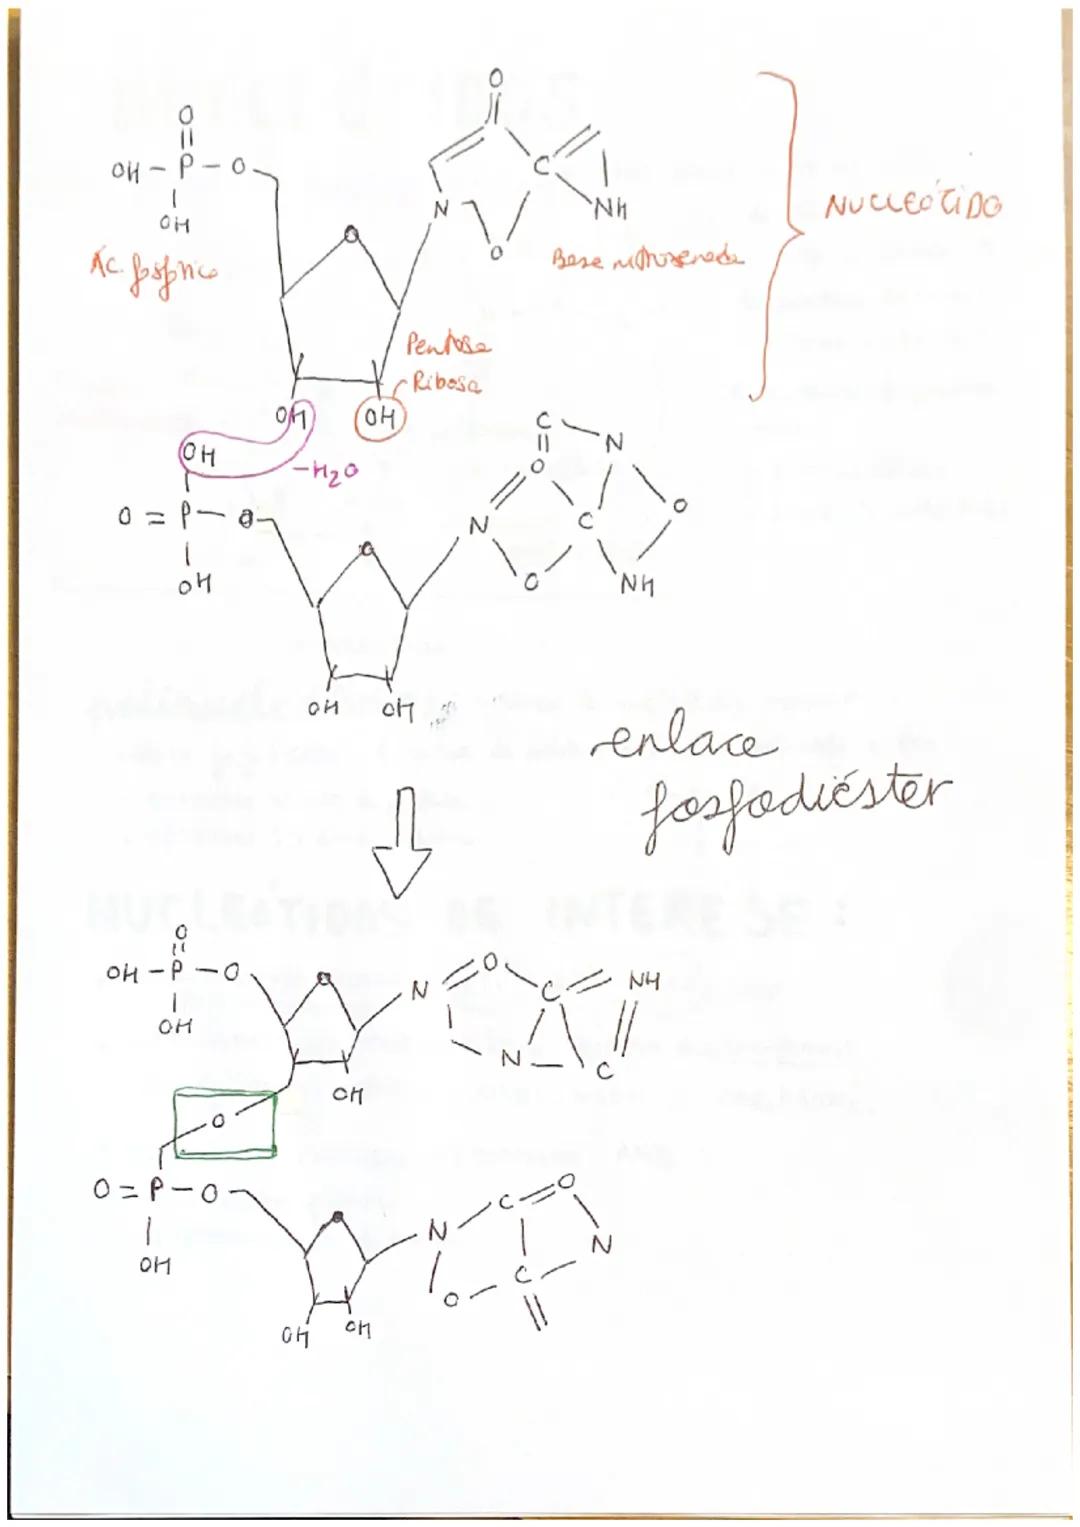 O
O
OH - P - O
C
NH
N
OH
O
O
NUCLEÓTIDO
Ác. fosfórico
Base nitrogenada
Pentosa
Ribosa
OH
OH
C
N
OH
-H2O
O
O = P - O
N
C
O
O
O
NH
OH
OH
OH
enlace
fosfodiéster
O
OH - P - O
O
N
O
C
NH
OH
N
C
OH
O
O = P - O
C
O
N
N
OH
O
C
OH
OH